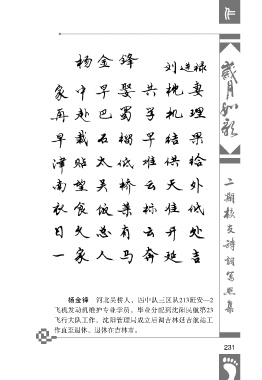 杨金锋
刘连禄
家中早娶共枕妻
再赴巴蜀学机理
早栽石榴早结果
津贴太低难供给
南望吴桥云天外
衣食饭菜标准低
日久总有云开处
一家人马奔延吉
杨金锋 河北吴桥人，四中队三区队213班安—2
飞机发动机维护专业学员。毕业分配到沈阳民航第23
飞行大队工作。沈阳管理局成立后调吉林延吉航站工
作直至退休。退休在吉林市。
岁月如歌
二期校友诗词写照集
231